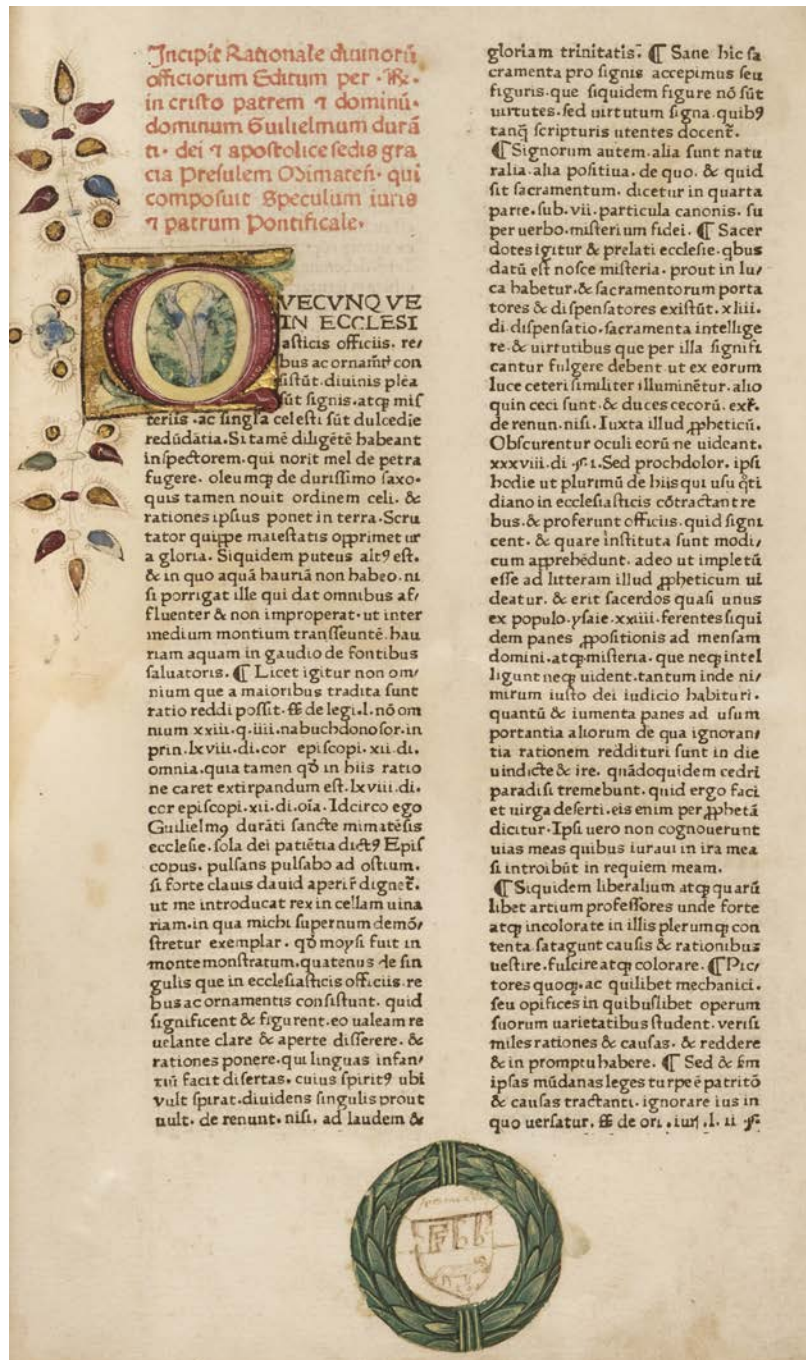 Incipit Rationale diuinorū
officiorum Editum per .R.
in cristo patrem ⁊ dominū.
dominum Guilielmum durā
ti. dei ⁊ apostolice sedis gra
cia Presulem Mimateñ. qui
composuit Speculum iuris
⁊ patrum Pontificale.
QVECVNQVE
IN ECCLESI
asticis officiis. re/
bus ac ornamt̄ con
sistūt. diuinis plēa
sūt signis. atqꝫ mis
teriis .ac singĺa celesti sūt dulcedīe
redūdātia. Si tamē diligētē habeant
inspectorem. qui norit mel de petra
sugere. oleumqꝫ de durissimo saxo.
quis tamen nouit ordinem celi. &
rationes ipsius ponet in terra. Scru
tator quippe maiestatis opprimetur
a gloria. Siquidem puteus altꝰ est.
& in quo aquā hauriā non habeo. ni
si porrigat ille qui dat omnibus af/
fluenter & non improperat. ut inter
medium montium transseuntē. hau
riam aquam in gaudio de fontibus
saluatoris. ¶ Licet igitur non om/
nium que a maioribus tradita sunt
ratio reddi possit. ff. de legi. l. nō om
nium xxiii. q. iiii. nabuchdonosor. in
prin. lxviii. di. cor episcopi. xii. di.
omnia. quia tamen qđ in hiis ratio
ne caret extirpandum est. lxviii. di.
cor episcopi. xii. di. oīa. Idcirco ego
Guilielmꝰ durāti sancte mimatēsis
ecclesie. sola dei patiētia dictꝰ Epis
copus. pulsans pulsabo ad ostium.
si forte clauis dauid aperir̄ dignet̄.
ut me introducat rex in cellam uina
riam. in qua michi supernum demō/
stretur exemplar. qđ moysi fuit in
monte monstratum. quatenus de sin
gulis que in ecclesiasticis officiis. re
bus ac ornamentis consistunt. quid
significent & figurent. eo ualeam re
uelante clare & aperte disserere. &
rationes ponere. qui linguas infan/
tiū facit disertas. cuius spiritꝰ ubi
vult spirat. diuidens singulis prout
uult. de renunt. nisi. ad laudem &
gloriam trinitatis. ¶ Sane hic sa
cramenta pro signis accepimus seu
figuris. que siquidem figure nō sūt
uirtutes. sed uirtutum signa. quibꝰ
tanq̄ scripturis utentes docent̄.
¶ Signorum autem. alia sunt natu
ralia. alia positiua. de quo. & quid
sit sacramentum. dicetur in quarta
parte. sub. vii. particula canonis. su
per uerbo. misterium fidei. ¶ Sacer
dotes igitur & prelati ecclesie. qbus
datū est nosce misteria. prout in lu/
ca habetur. & sacramentorum porta
tores & dispensatores existūt. xliii.
di. dispensatio. sacramenta intellige
re. & uirtutibus que per illa signifi
cantur fulgere debent. ut ex eorum
luce ceteri similiter illuminētur. alio
quin ceci sunt. & duces cecorū. extr̄.
de renun. nisi. Iuxta illud ꝓpheticū.
Obscurentur oculi eorū ne uideant.
xxxviii. di §. 1. Sed prochdolor. ipsi
hodie ut plurimū de hiis qui usu q̄ti
diano in ecclesiasticis cōtractant re
bus. & proferunt officiis. quid signi
ficent. & quare instituta sunt modi/
cum apprehēdunt. adeo ut impletū
esse ad litteram illud ꝓpheticum ui
deatur. & erit sacerdos quasi unus
ex populo. ysaie. xxiiii. ferentes siqui
dem panes ꝓpositionis ad mensam
domini. atqꝫ misteria. que neqꝫ intel
ligunt neqꝫ uident. tantum inde ni/
mirum iusto dei iudicio habituri.
quantū & iumenta panes ad usum
portantia aliorum de qua ignoran/
tia rationem reddituri sunt in die
uindicte & ire. quādoquidem cedri
paradisi tremebunt. quid ergo faci
et uirga deserti. eis enim per ꝓphetā
dicitur. Ipsi uero non cognouerunt
uias meas quibus iuraui in ira mea
si introibūt in requiem meam.
¶ Siquidem liberalium atqꝫ quarū
libet artium professores unde forte
atqꝫ incolorate in illis plerumqꝫ con
tenta satagunt causis & rationibus
uestire. fulcire atqꝫ colorare. ¶ Pic/
tores quoqꝫ. ac quilibet mechanici.
seu opifices in quibuslibet operum
suorum uarietatibus student. verisi
miles rationes & causas. & reddere
& in promptu habere. ¶ Sed & sm̄
ipsas mūdanas leges turpe ē patritō
& causas tractanti. ignorare ius in
quo uersatur. ff. de ori. iuř. l. ii §.